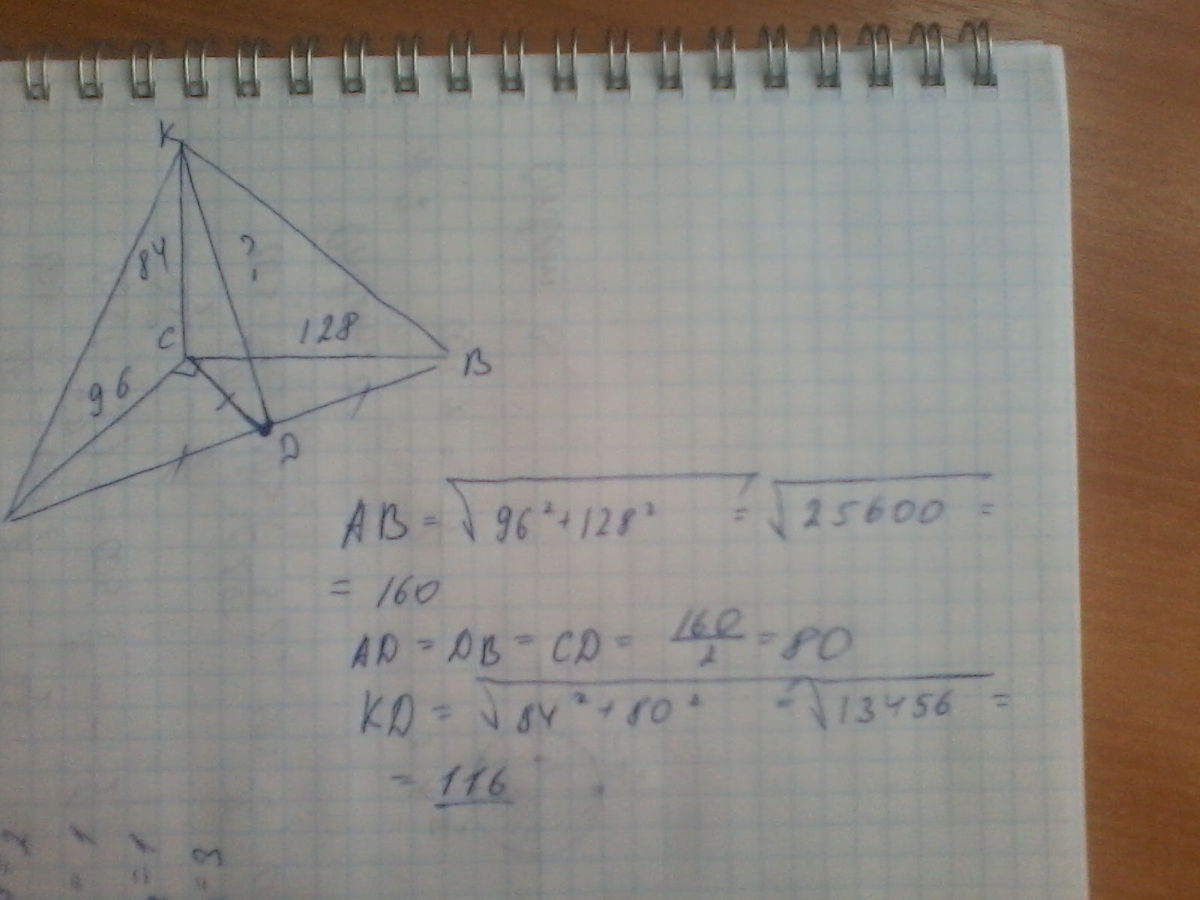 K
84 ?
C 128
96 B
D
AB = √96²+128² = √25600 =
= 160
AD = DB = CD = 160/2 = 80
KD = √84²+80² = √13456 =
= 116